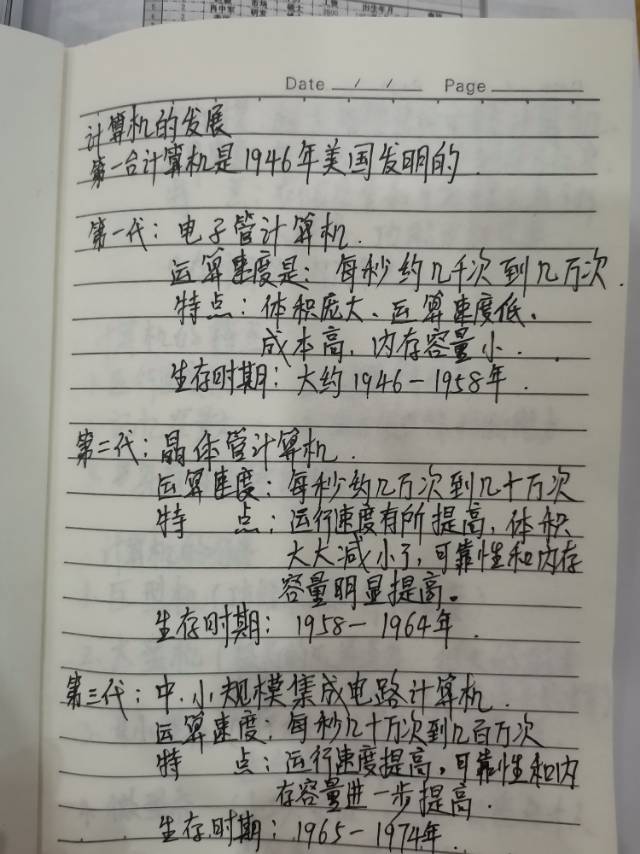 Date / / Page
计算机的发展
第一台计算机是1946年美国发明的.
第一代：电子管计算机.
运算速度是：每秒约几千次到几万次.
特点：体积庞大、运算速度低、
成本高，内存容量小..
生存时期：大约1946－1958年.
第二代：晶体管计算机.
运算速度：每秒约几万次到几十万次
特 点：运行速度有所提高，体积
大大减小了，可靠性和内存
容量明显提高。
生存时期：1958－1964年.
第三代：中.小规模集成电路计算机.
运算速度：每秒几十万次到几百万次
特 点：运行速度提高，可靠性和内
存容量进一步提高.
生存时期：1965－1974年.